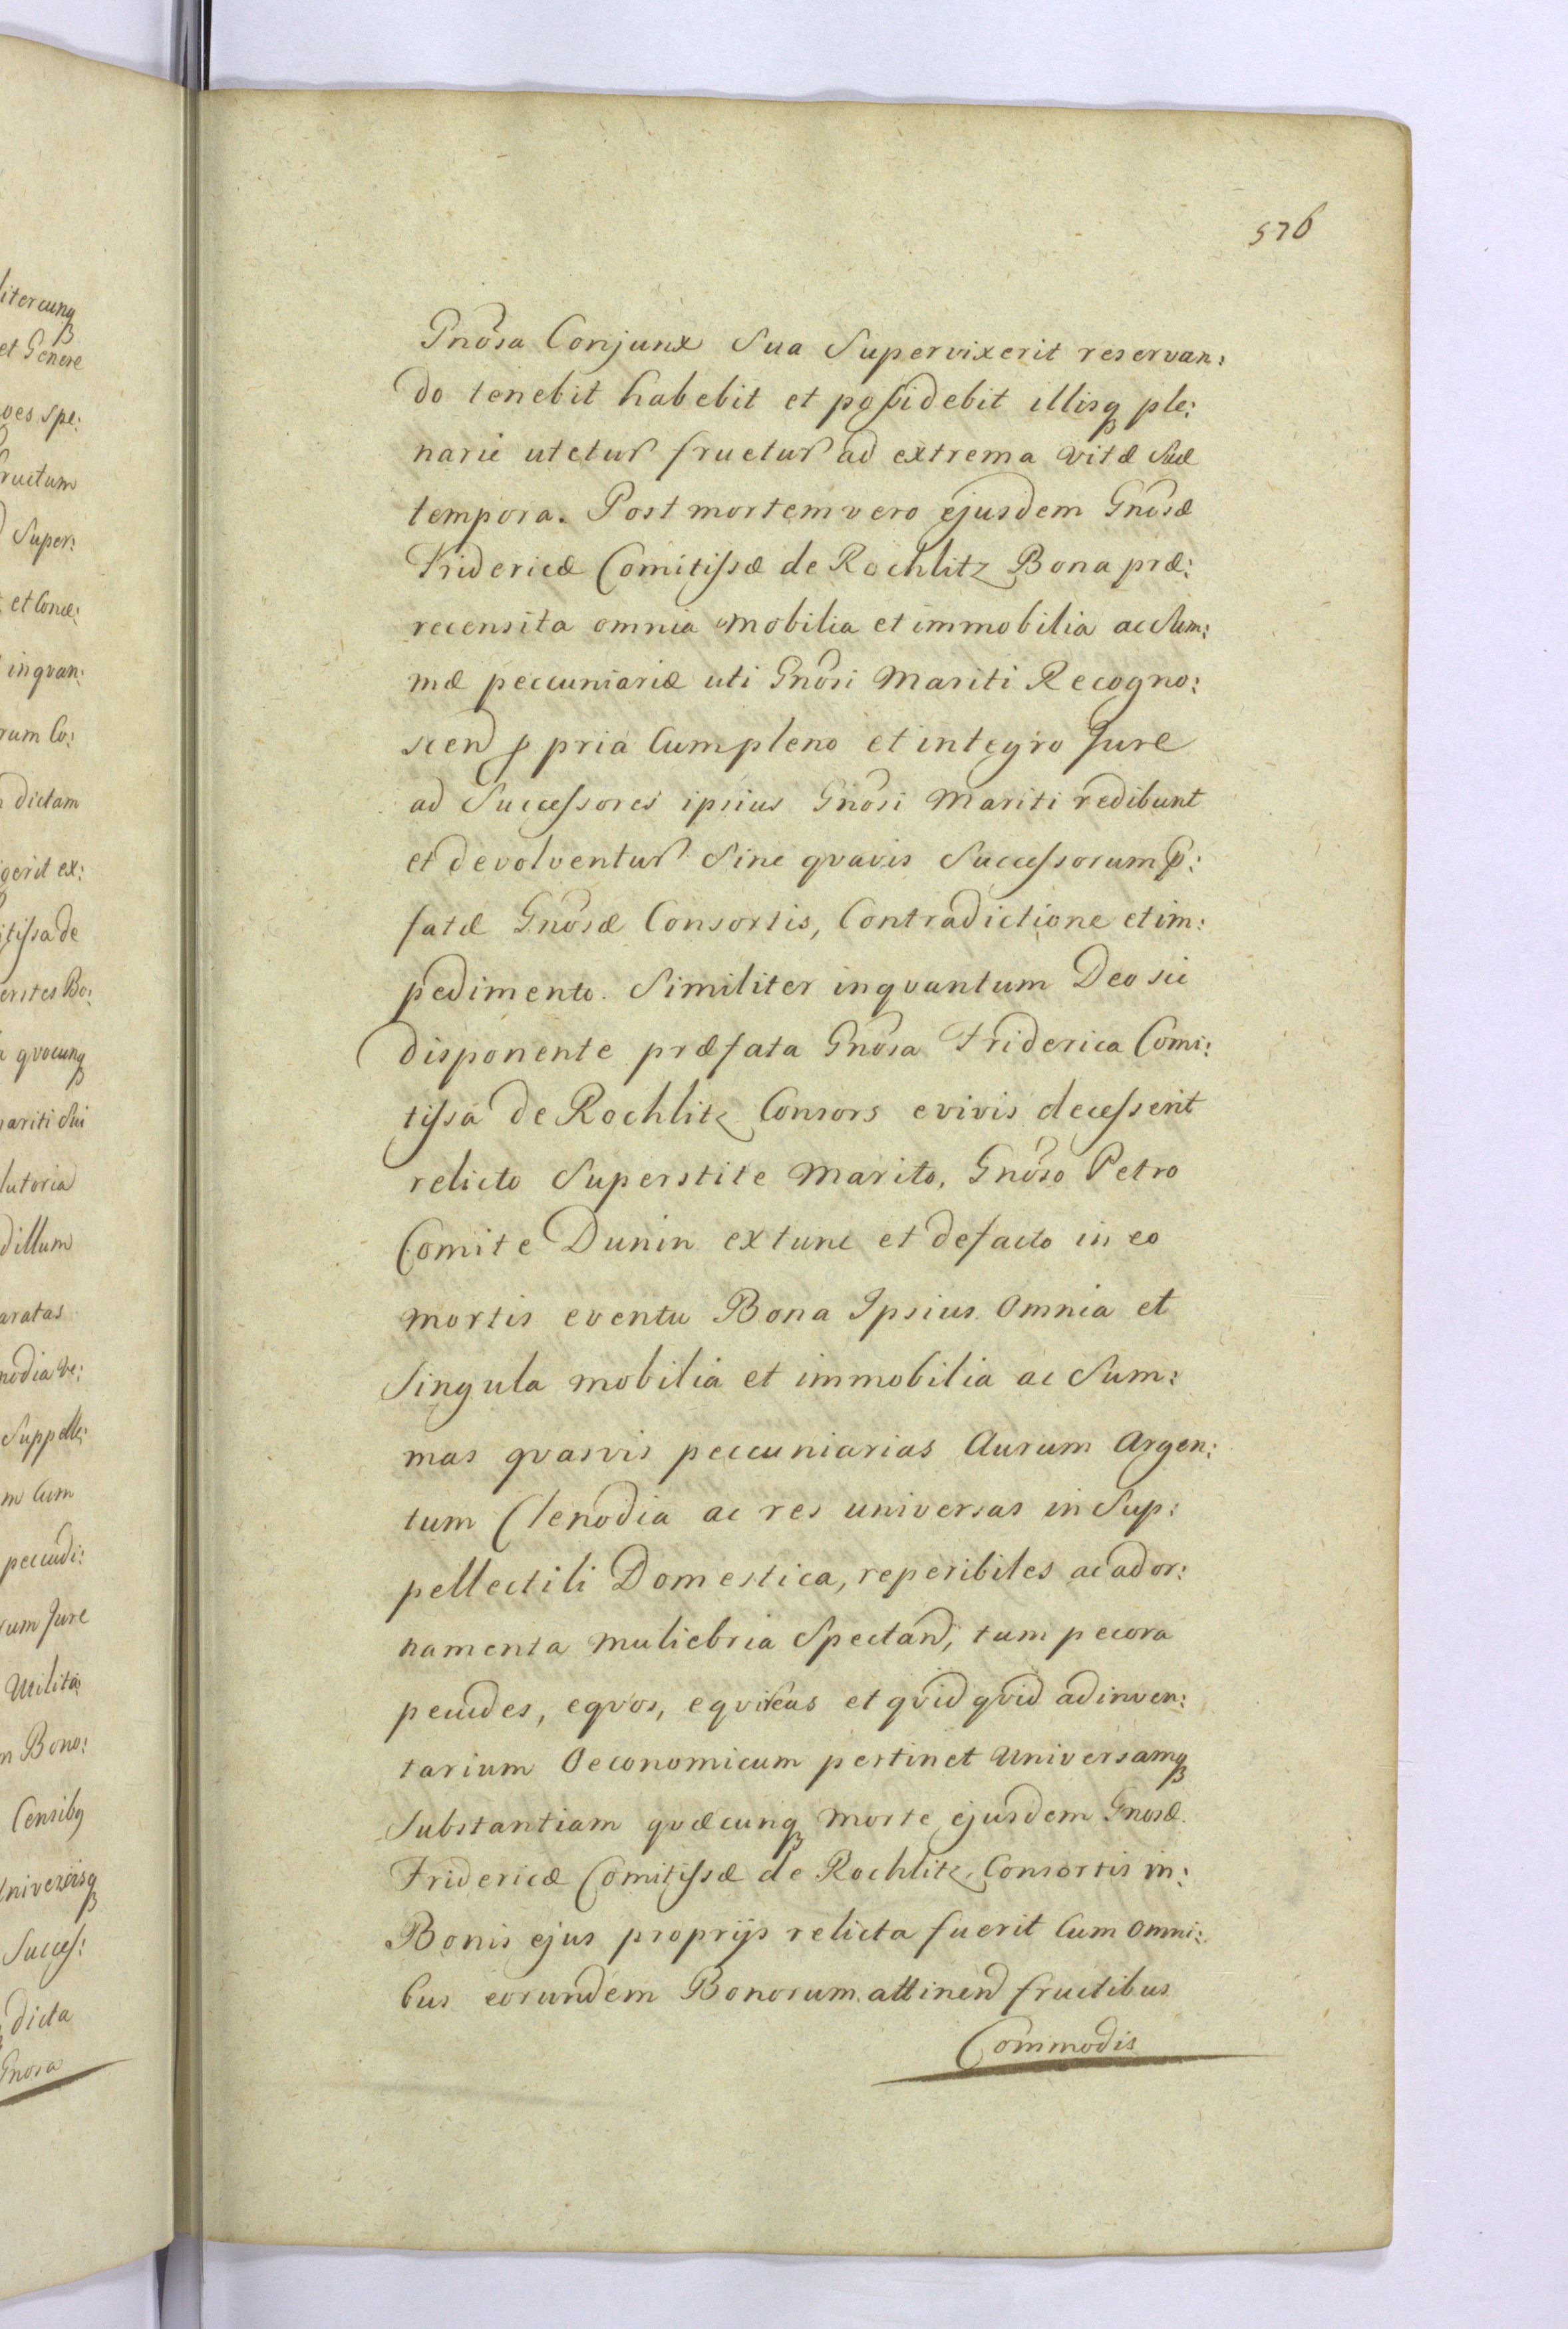 576
Gnosa Conjunx Sua Supervixerit reservan:
do tenebit habebit et possidebit illisq ple:
narie utetur fruetur ad extrema vitæ Suæ
tempora. Post mortem vero ejusdem Gnosæ
Fridericæ Comitissæ de Rochlitz Bona præ:
recensita omnia mobilia et immobilia ac Sum:
mæ peccuniariæ uti Gnosi Mariti Recogno:
scend ppria Cum pleno et integro Jure
ad Successores ipsius Gnosi Mariti redibunt
et devolventur Sine qvavis Successorum p:
fatæ Gnosæ Consortis, Contradictione et im:
pedimento. Similiter inqvantum Deo sic
disponente præfata Gnosa Friderica Comi:
tissa de Rochlitz Consors e vivis decesserit
relicto Superstite Marito, Gnoso Petro
Comite Dunin extunc et defacto in eo
mortis eventu Bona Ipsius Omnia et
Singula mobilia et immobilia ac Sum:
mas qvasvis peccuniarias Aurum Argen:
tum Clenodia ac res universas in Sup:
pellectili Domestica, reperibiles ac ad or:
namenta muliebria Spectand, tum pecora
pecudes, eqvos, eqvireas et qvidqvid ad inven:
tarium Oeconomicum pertinet Universamq
Substantiam qvæcunq morte ejusdem Gnosæ
Fridericæ Comitissæ de Rochlitz, Consortis in:
Bonis ejus proprijs relicta fuerit Cum Omni:
bus eorundem Bonorum attinend fructibus
Commodis